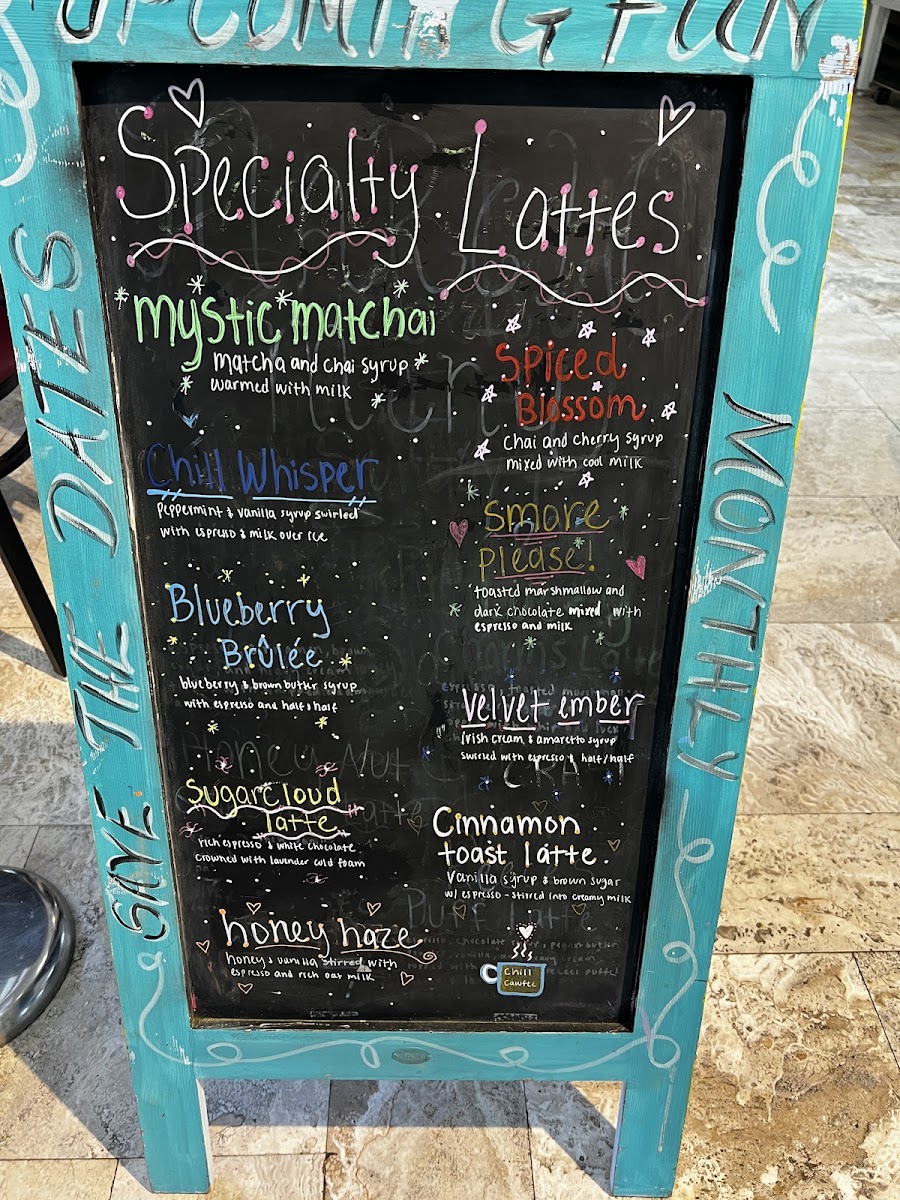 UPCOMING FUN
SAVE THE DATES
MONTHLY
Specialty Lattes
mystic matchai
matcha and chai syrup
warmed with milk
Chill Whisper
peppermint & vanilla syrup swirled
with espresso & milk over ice
Blueberry
Brûlée
blueberry & brown butter syrup
with espresso and half & half
Sugarcloud
latte
rich espresso & white chocolate
crowned with lavender cold foam
honey haze
honey & vanilla stirred with
espresso and rich oat milk
Spiced
Blossom
Chai and cherry syrup
mixed with cool milk
smore
please!
toasted marshmallow and
dark chocolate mixed with
espresso and milk
Velvet ember
Irish cream & amaretto syrup
swirled with espresso & half/half
Cinnamon
toast latte
Vanilla syrup & brown sugar
w/ espresso - stirred into creamy milk
Chill
Cawfee